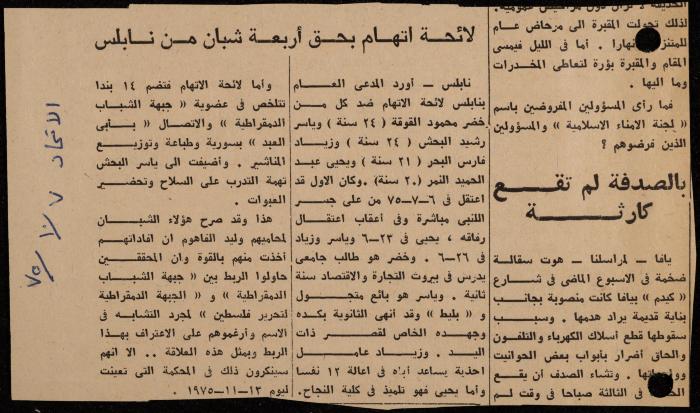 لائحة اتهام بحق أربعة شبان من نابلس
نابلس — أورد المدعى العام
بنابلس لائحة الاتهام ضد كل من
خضر محمود القوقة ( ٢٤ سنة ) وياسر
رشيد البحش ( ٢٤ سنة ) وزياد
فارس البحر ( ٢١ سنة ) ويحيى عبد
الحميد النمر (٢٠ سنة) . وكان الاول قد
اعتقل في ٦-٧-٧٥ من على جسر
اللنبى مباشرة وفى أعقاب اعتقال
رفاقه ، يحيى فى ٢٣-٦ وياسر وزياد
فى ٢٦-٦ . وخضر هو طالب جامعى
يدرس فى بيروت التجارة والاقتصاد سنة
ثانية . وياسر هو بائع متجول
« بليط » وقد أنهى الثانوية بكده
وجهده الخاص لقصر ذات
اليد . وزياد عامل
احذية يساعد أباه فى اعالة ١٢ نفسا
وأما يحيى فهو تلميذ فى كلية النجاح .
وأما لائحة الاتهام فتضم ١٤ بندا
تتلخص فى عضوية « جبهة الشباب
الدمقراطية » والاتصال « بأبى
العبد » بسورية وطباعة وتوزيع
المناشير . وأضيفت الى ياسر البحش
تهمة التدرب على السلاح وتحضير
العبوات .
هذا وقد صرح هؤلاء الشبان
لمحاميهم وليد الفاهوم ان افاداتهم
أخذت منهم بالقوة وان المحققين
حاولوا الربط بين « جبهة الشباب
الدمقراطية » و « الجبهة الدمقراطية
لتحرير فلسطين » لمجرد التشابه فى
الاسم وأرغموهم على الاعتراف بهذا
الربط وبمثل هذه العلاقة .. الا انهم
سينكرون ذلك فى المحكمة التى تعينت
ليوم ١٣-١١-١٩٧٥ .
لذلك تحولت المقبرة الى مرحاض عام
للمتنز نهارا . أما فى الليل فيمسى
المقام والمقبرة بؤرة لتعاطى المخدرات
وما اليها .
فما رأى المسؤولين المفروضين باسم
« لجنة الامناء الاسلامية » والمسؤولين
الذين فرضوهم ؟
بالصدفة لم تقع
كارثة
يافا — لمراسلنا — هوت سقالة
ضخمة فى الاسبوع الماضى فى شارع
« كيدم » بيافا كانت منصوبة بجانب
بناية قديمة يراد هدمها . وسبب
سقوطها قطع أسلاك الكهرباء والتلفون
والحاق أضرار بأبواب بعض الحوانيت
وتشاء الصدف أن يقع
فى الثالثة صباحا فى وقت لم
الاتحاد ٧ / ١٠ / ٧٥